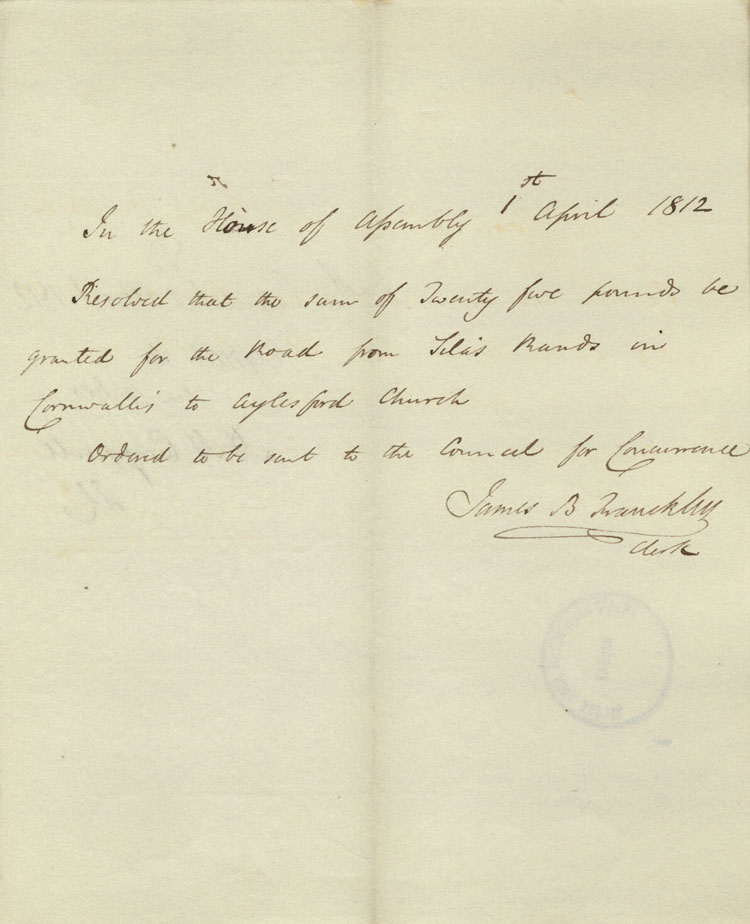 In the House of Assembly 1st April 1812
Resolved that the sum of Twenty five pounds be
granted for the Road from Silas Rands in
Cornwallis to Aylesford Church
Ordered to be sent to the Council for Concurrence
James B Franckling
Clerk